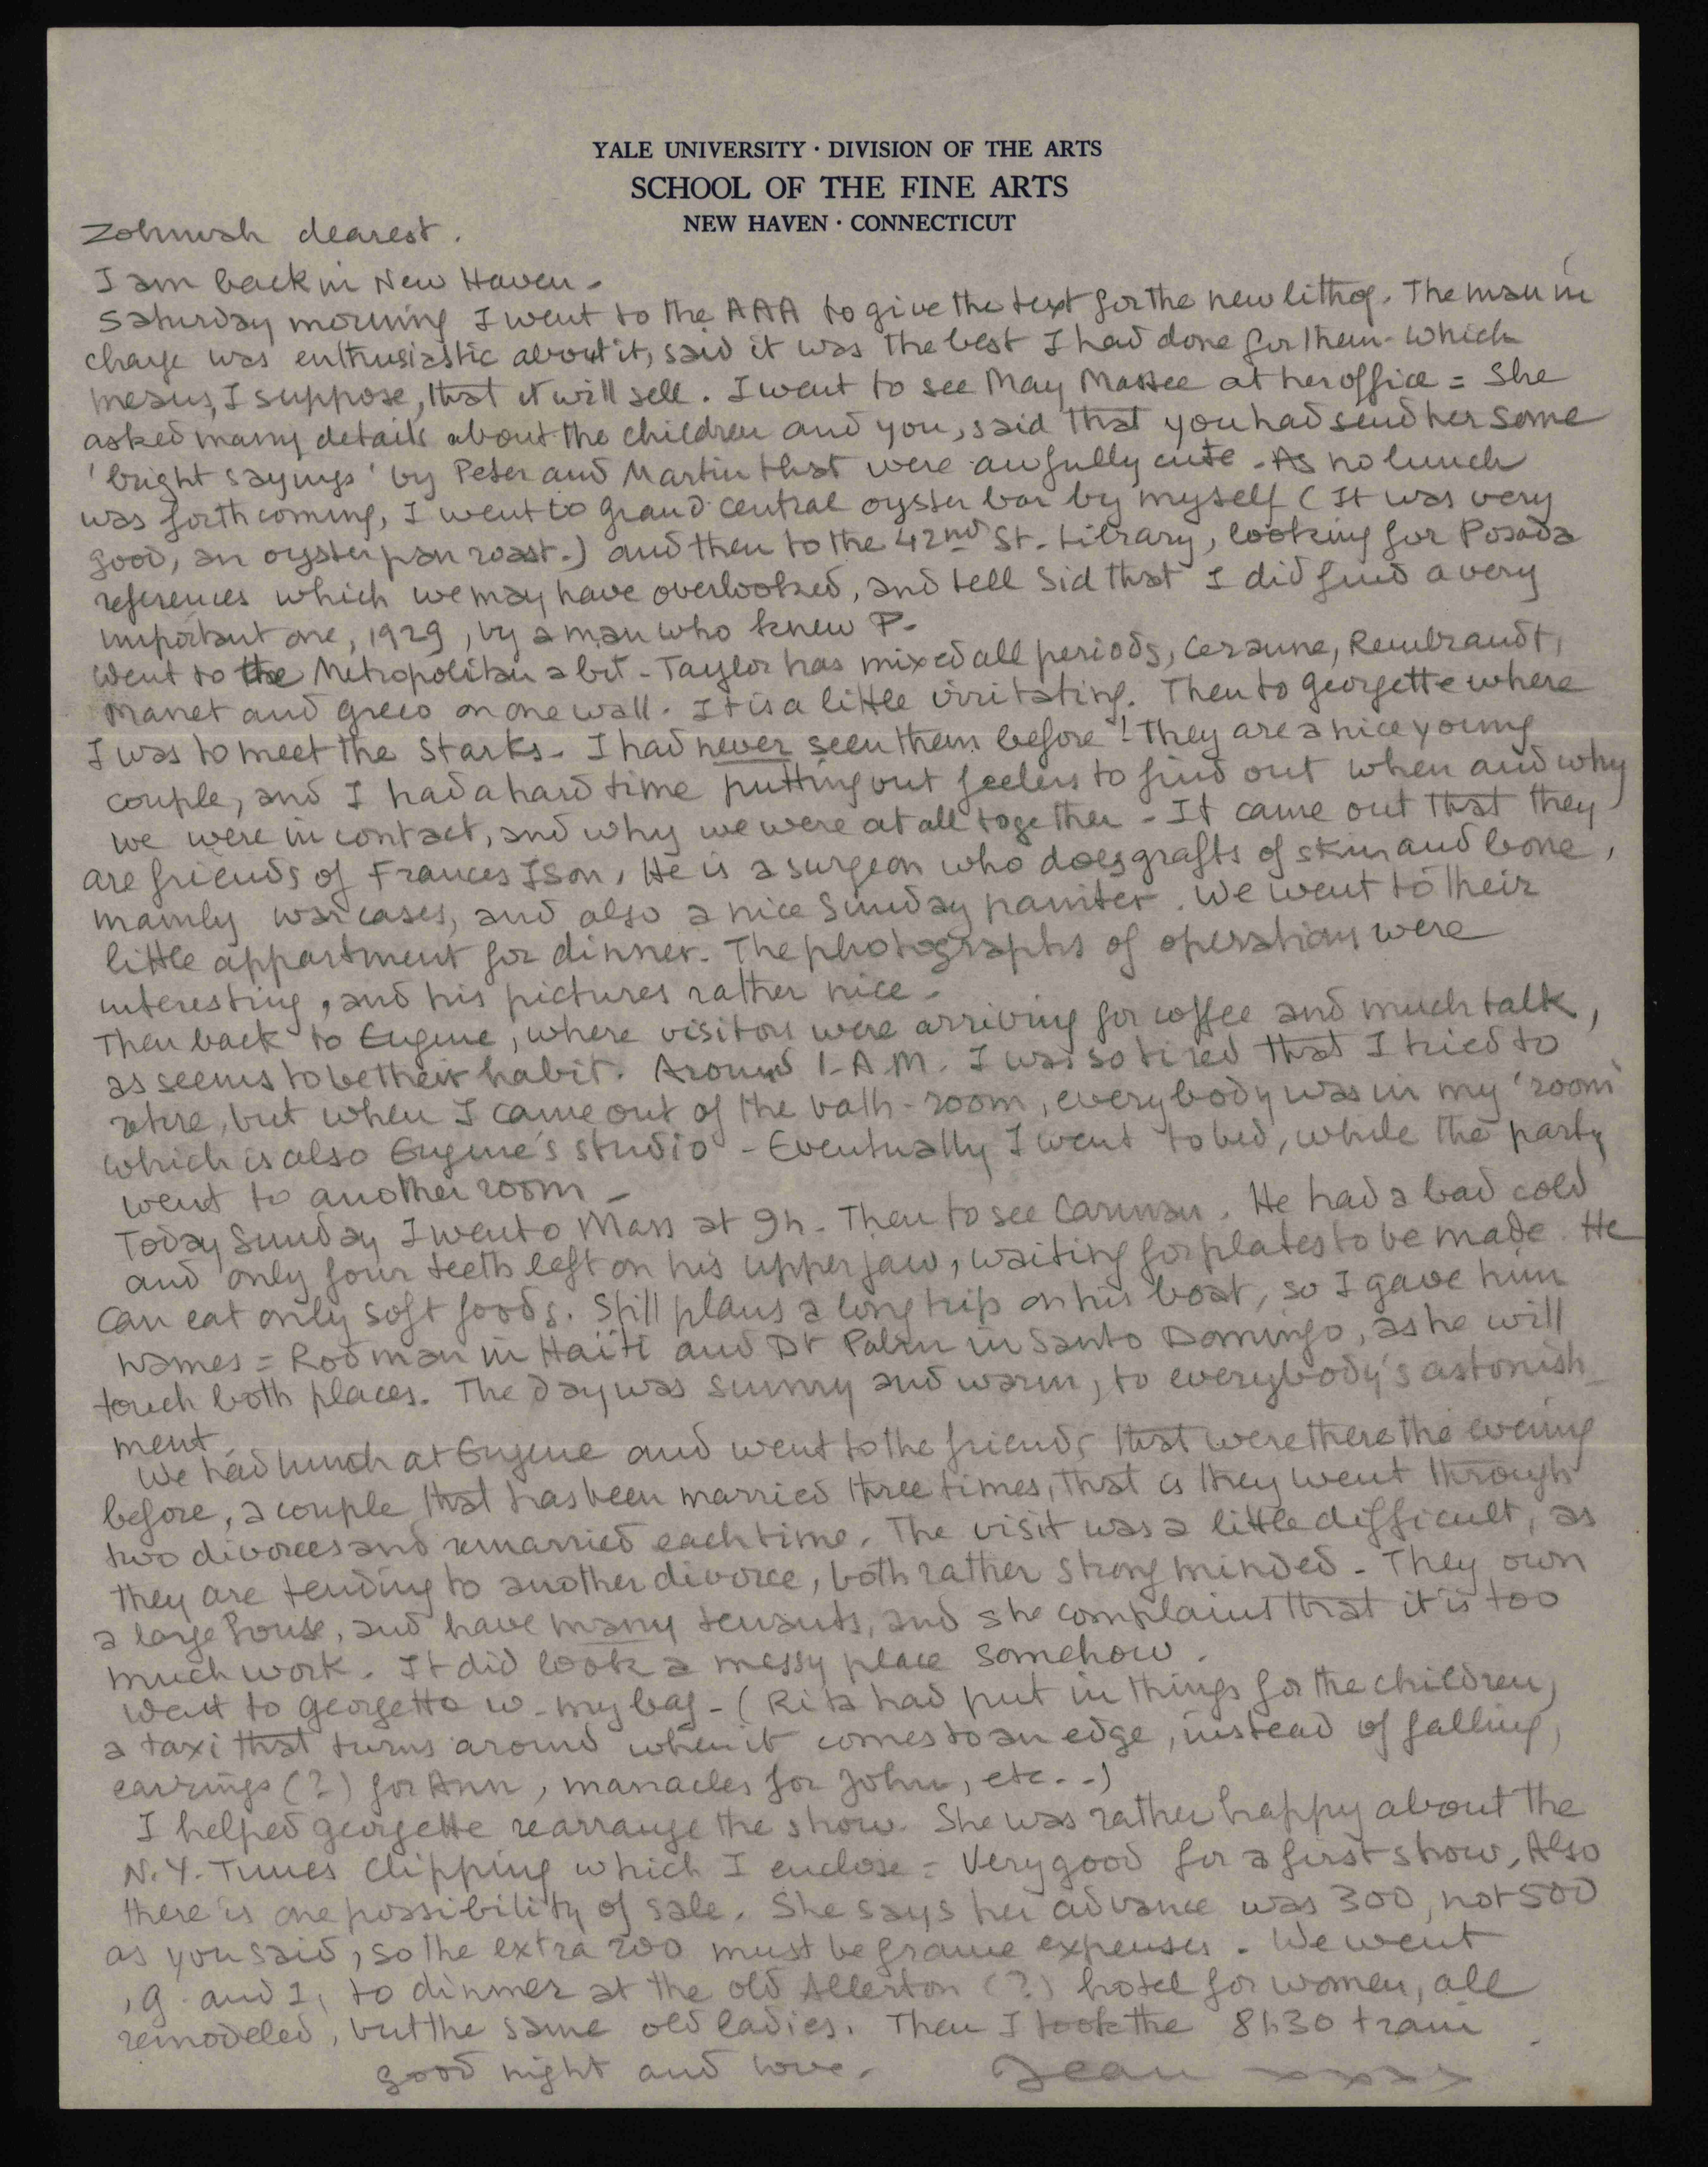 YALE UNIVERSITY · DIVISION OF THE ARTS
SCHOOL OF THE FINE ARTS
NEW HAVEN · CONNECTICUT
Zohmah dearest.
I am back in New Haven.
Saturday morning I went to the AAA to give the text for the new lithog. The man in
charge was enthusiastic about it, said it was the best I had done for them - which
means, I suppose, that it will sell. I went to see May Massee at her office = She
asked many details about the children and you, said that you had send her some
'bright sayings' by Peter and Martin that were awfully cute - As no lunch
was forthcoming, I went to grand central oyster bar by myself (It was very
good, an oyster pan roast.) and then to the 42nd St. Library, looking for Posada
references which we may have overlooked, and tell Sid that I did find a very
important one, 1929, by a man who knew P.
Went to the Metropolitan a bit - Taylor has mixed all periods, Cezanne, Rembrandt,
Manet and Greco on one wall. It is a little irritating. Then to Georgette where
I was to meet the Starks - I had never seen them before! They are a nice young
couple, and I had a hard time putting out feelers to find out when and why
we were in contact, and why we were at all together - It came out that they
are friends of Frances Ison. He is a surgeon who does grafts of skin and bone,
mainly war cases, and also a nice Sunday painter. We went to their
little appartment for dinner. The photographs of operations were
interesting, and his pictures rather nice.
Then back to Eugene, where visitors were arriving for coffee and much talk,
as seems to be their habit. Around 1. A.M. I was so tired that I tried to
retire, but when I came out of the bath-room, everybody was in my 'room'
which is also Eugene's studio - Eventually I went to bed, while the party
went to another room -
Today Sunday I went o Mass at 9h. Then to see Carman. He had a bad cold
and only four teeth left on his upper jaw, waiting for plates to be made. He
can eat only soft foods. Still plans a long trip on his boat, so I gave him
names = Rodman in Haïti and Dr Palm in Santo Domingo, as he will
touch both places. The day was sunny and warm, to everybody's astonish-
ment.
We had lunch at Eugene and went to the friends that were there the evening
before, a couple that has been married three times, that is they went through
two divorces and remarried each time. The visit was a little difficult, as
they are tending to another divorce, both rather strong minded - They own
a large house, and have many tenants, and she complains that it is too
much work. It did look a messy place somehow.
Went to Georgette w. my bag - (Rita had put in things for the children,
a taxi that turns around when it comes to an edge, instead of falling,
earrings (?) for Ann, manacles for John, etc. -)
I helped Georgette rearrange the show. She was rather happy about the
N.Y. Times clipping which I enclose = Very good for a first show, Also
there is one possibility of sale. She says her advance was 300, not 500
as you said, so the extra 200 must be frame expenses. We went
, G. and I, to dinner at the old Allerton (?) hotel for women, all
remodeled, but the same old ladies. Then I took the 8h30 train.
good night and love. Jean xxxx